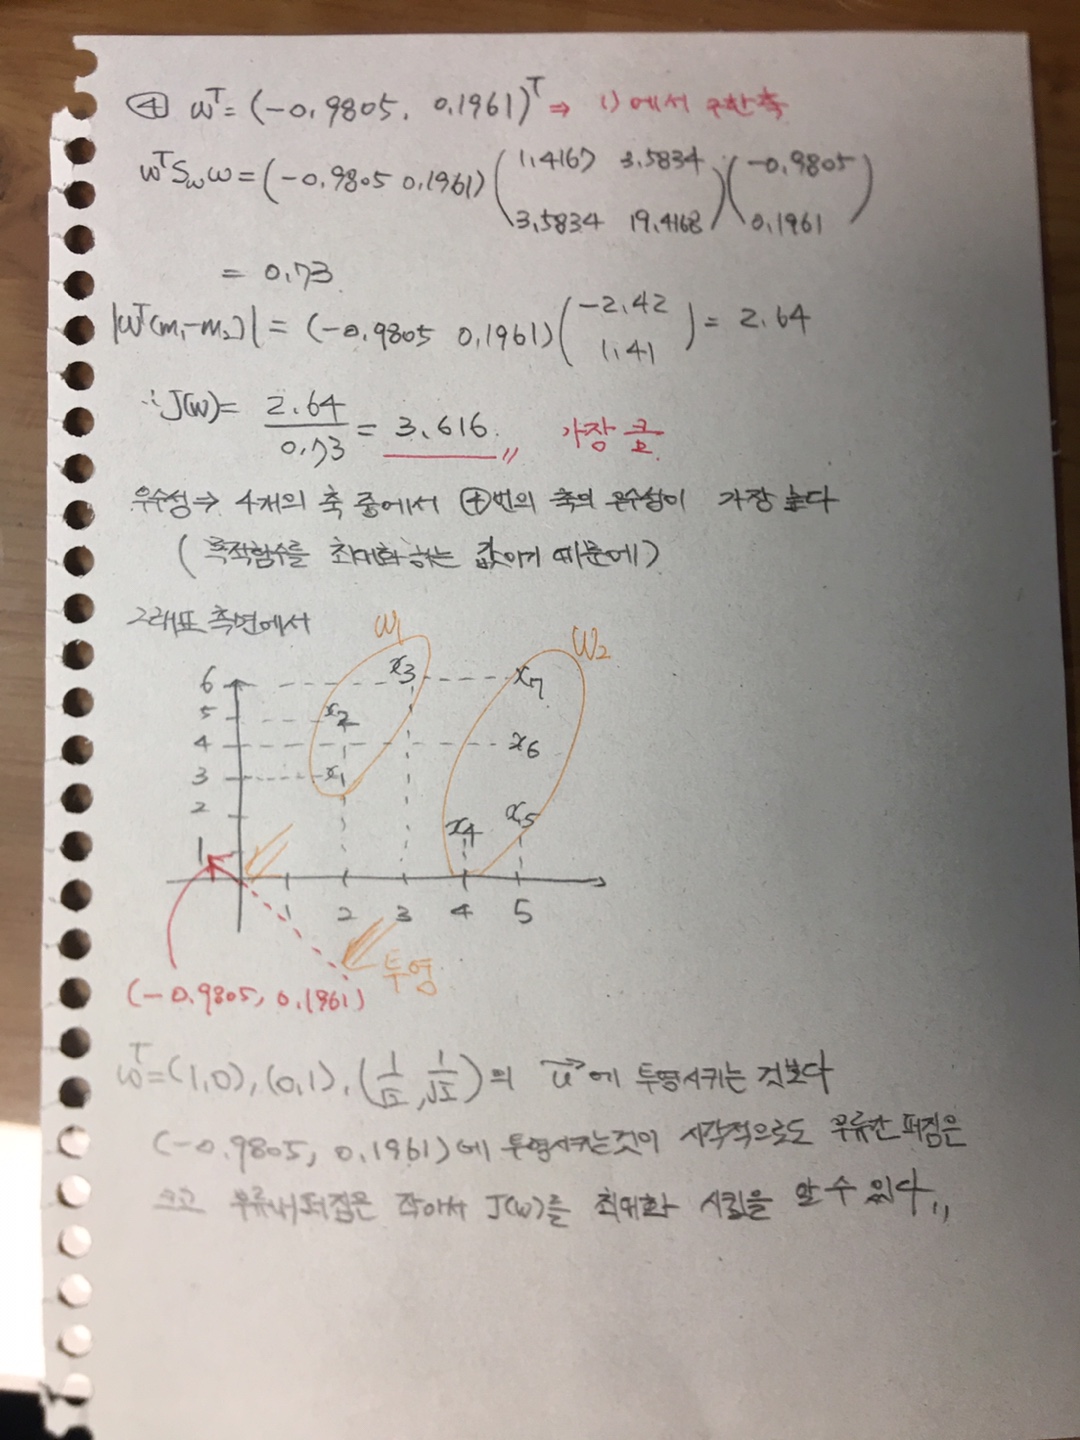 ④ wᵀ = (-0.9805, 0.1961)ᵀ ⇒ 1)에서 구한 축
wᵀSww = (-0.9805 0.1961) (1.4167 3.5834) (-0.9805)
3.5834 19.4168 0.1961
= 0.73
|wᵀ(m₁-m₂)| = (-0.9805 0.1961) (-2.42) = 2.64
1.41
∴ J(w) = 2.64 / 0.73 = 3.616 〃 가장 큼
우수성 ⇒ 4개의 축 중에서 ④번의 축의 우수성이 가장 높다
(목적함수를 최대화 하는 값이기 때문에)
그래프 측면에서
W₁ W₂
x₃ x₇
x₂
x₆
x₁
x₅
x₄
6
5
4
3
2
1
1 2 3 4 5
투영
(-0.9805, 0.1961)
wᵀ = (1,0), (0,1), (1/√2, 1/√2)의 u⃗에 투영시키는 것보다
(-0.9805, 0.1961)에 투영시키는것이 시각적으로도 부류간 퍼짐은
크고 부류내 퍼짐은 작아서 J(w)를 최대화 시킴을 알 수 있다〃